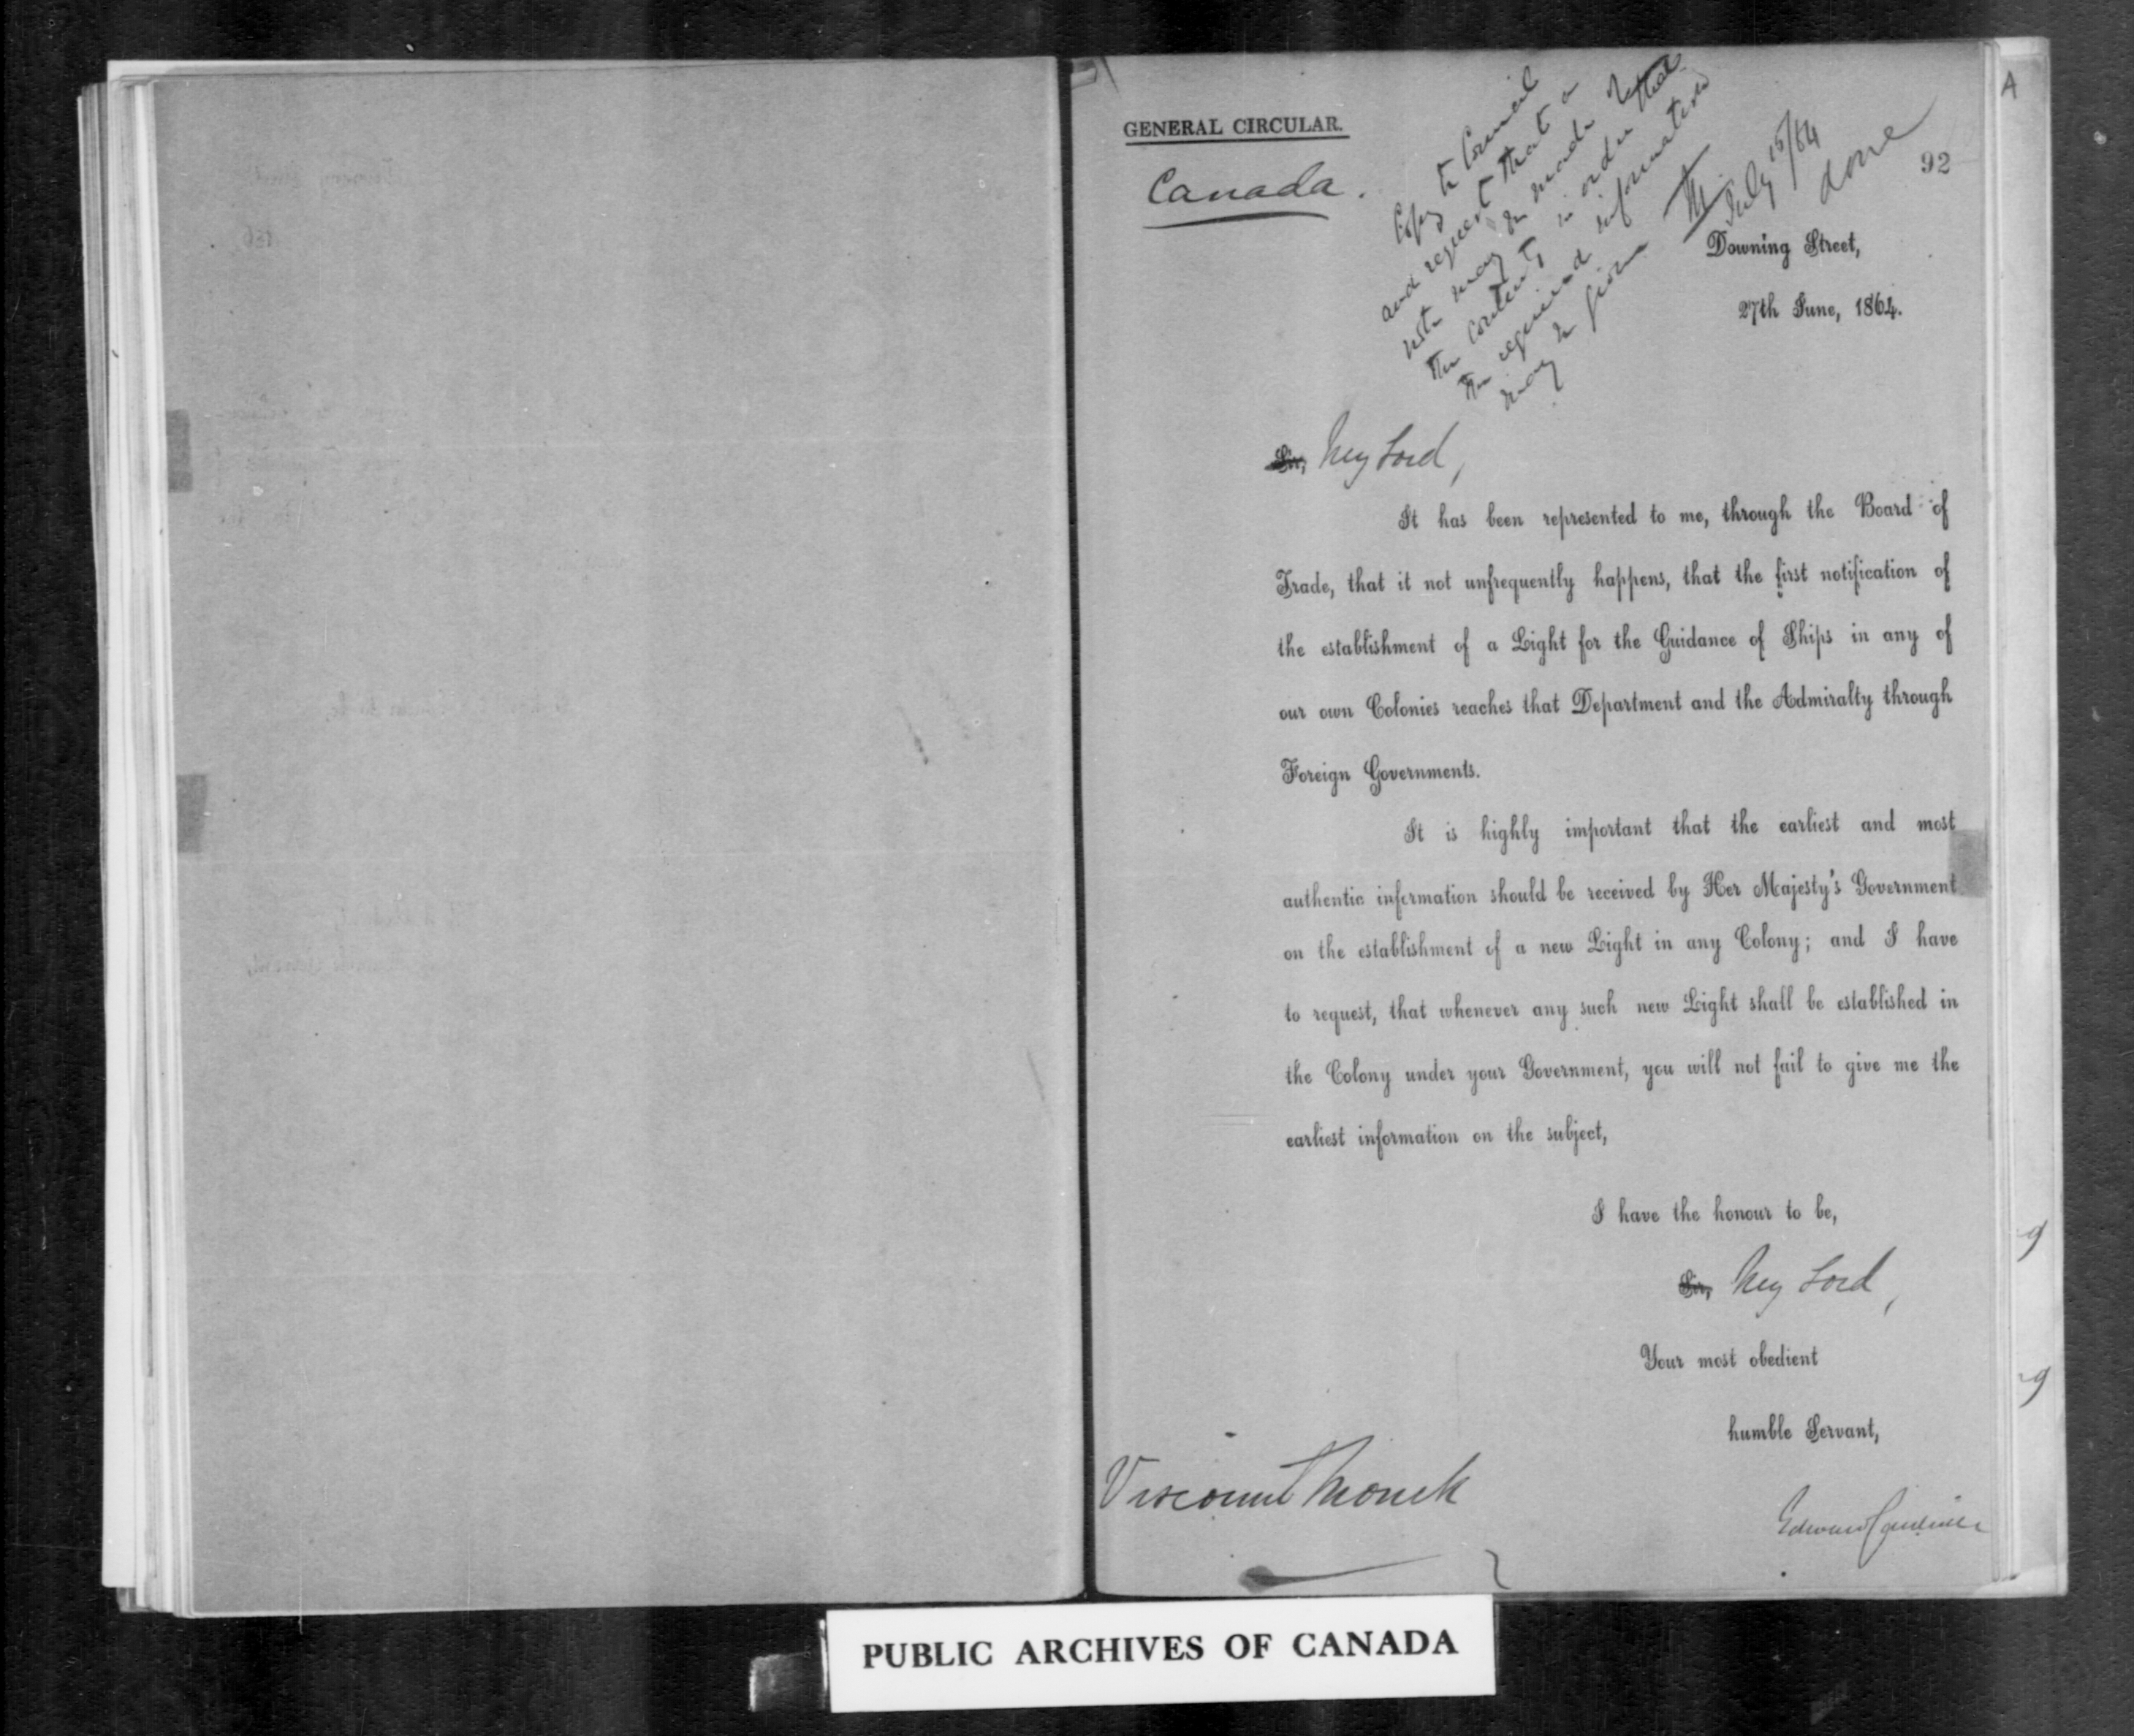 GENERAL CIRCULAR.
Canada.
92
Copy to Council
and request that a
note may be made of
the contents in order that
the required information
may be given
M.
July 15/64
done
Downing Street,
27th June, 1864.
Sir, My Lord,
It has been represented to me, through the Board of
Trade, that it not unfrequently happens, that the first notification of
the establishment of a Light for the Guidance of Ships in any of
our own Colonies reaches that Department and the Admiralty through
Foreign Governments.
It is highly important that the earliest and most
authentic information should be received by Her Majesty's Government
on the establishment of a new Light in any Colony; and I have
to request, that whenever any such new Light shall be established in
the Colony under your Government, you will not fail to give me the
earliest information on the subject,
I have the honour to be,
Sir, My Lord,
Your most obedient
humble Servant,
Viscount Monck
Edward Cardwell
PUBLIC ARCHIVES OF CANADA